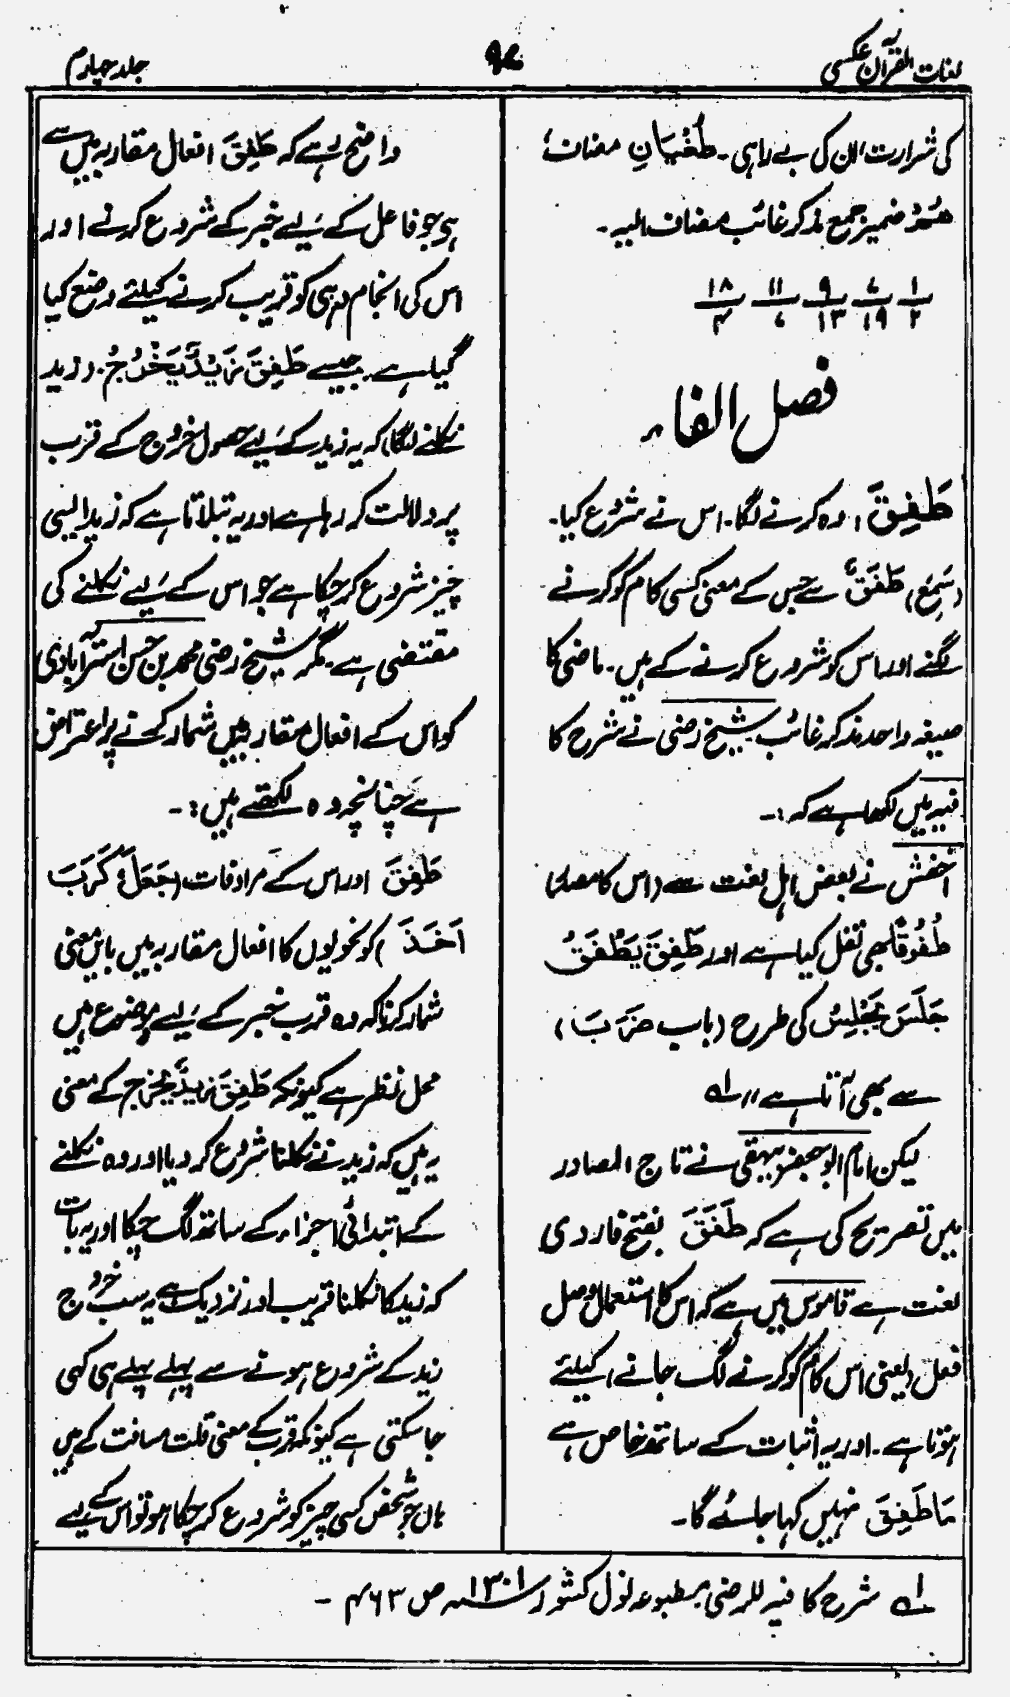 لغات القرآن عکسی
۹۷
جلد چہارم
کی شرارت ان کی بے راہی۔ طُغْیَانِ مضاف؛
ھُمْ ضمیر جمع مذکر غائب مضاف الیہ۔
۱/۲ ۷/۱۹ ۹/۱۳ ۱۱/۶ ۱۸/۴
فصل الفاء
طَفِقَ، وہ کرنے لگا۔ اس نے شروع کیا۔
(سَمِعَ) طَفَقٌ سے جس کے معنی کسی کام کو کرنے
لگنے اور اس کو شروع کرنے کے ہیں۔ ماضی کا
صیغہ واحد مذکر غائب شیخ رضی نے شرح کا
فیہ میں لکھا ہے کہ :۔
اخفش نے بعض اہل لغت سے (اس کا مصدر)
طُفُوْقًا بھی نقل کیا ہے اور طَفِقَ یَطْفَقُ
جَلَسَ یَجْلِسُ کی طرح (باب ضَرَبَ)
سے بھی آتا ہے،، لہ
لیکن امام ابو جعفر بیہقی نے تاج المصادر
میں تصریح کی ہے کہ طَفَقَ بفتح فا ردی
لغت ہے قاموس میں ہے کہ اس کا استعمال وصل
فعل (یعنی اس کام کو کرنے لگ جانے) کیلئے
ہوتا ہے۔ اور یہ اثبات کے ساتھ خاص ہے
مَا طَفِقَ نہیں کہا جائے گا۔
واضح رہے کہ طَفِقَ افعال مقاربہ میں سے
ہی جو فاعل کے لیے خبر کے شروع کرنے اور
اس کی انجام دہی کو قریب کرنے کیلئے وضع کیا
گیا ہے۔ جیسے طَفِقَ زَیْدٌ یَخْرُجُ۔ (زید
نکلنے لگا) کہ یہ زید کے لیے حصول خروج کے قرب
پر دلالت کر رہا ہے اور یہ بتلاتا ہے کہ زید ایسی
چیز شروع کر چکا ہے جو اس کے لیے نکلنے کی
مقتضی ہے۔ مگر شیخ رضی محمد بن حسن استرآبادی
کو اس کے افعال مقاربہ میں شمار کرنے پر اعتراض
ہے چنانچہ وہ لکھتے ہیں :۔
طَفِقَ اور اس کے مرادفات (جَعَلَ، کَرَبَ
اَخَذَ) کو نحویوں کا افعال مقاربہ میں بایں معنی
شمار کرنا کہ وہ قرب خبر کے لیے موضوع ہیں
محل نظر ہے کیونکہ طَفِقَ زیدٌ یَخرج کے معنی
یہ ہیں کہ زید نے نکلنا شروع کر دیا اور وہ نکلنے
کے ابتدائی اجزاء کے ساتھ لگ چکا اور یہ بات
کہ زید کا نکلنا قریب اور نزدیک ہے یہ سب خروج
زید کے شروع ہونے سے پہلے پہلے ہی کہی
جا سکتی ہے کیونکہ قرب کے معنی قلت مسافت کے ہیں
ہاں جو شخص کسی چیز کو شروع کر چکا ہو تو اس کے لیے
لہ شرح کافیہ للرضی مطبوعہ نول کشور ۱۳۰۱ھ ص ۴۶۳ ۔